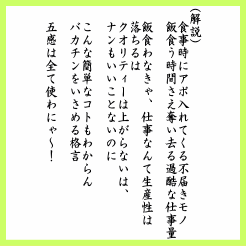 (解説)
食事時にアポ入れてくる不届きモノ
飯食う時間さえ奪い去る過酷な仕事量
飯食わなきゃ、仕事なんて生産性は
落ちるは
クオリティーは上がらないは、
ナンもいいことないのに
こんな簡単なコトもわからん
バカチンをいさめる格言
五感は全て使わにゃ〜!